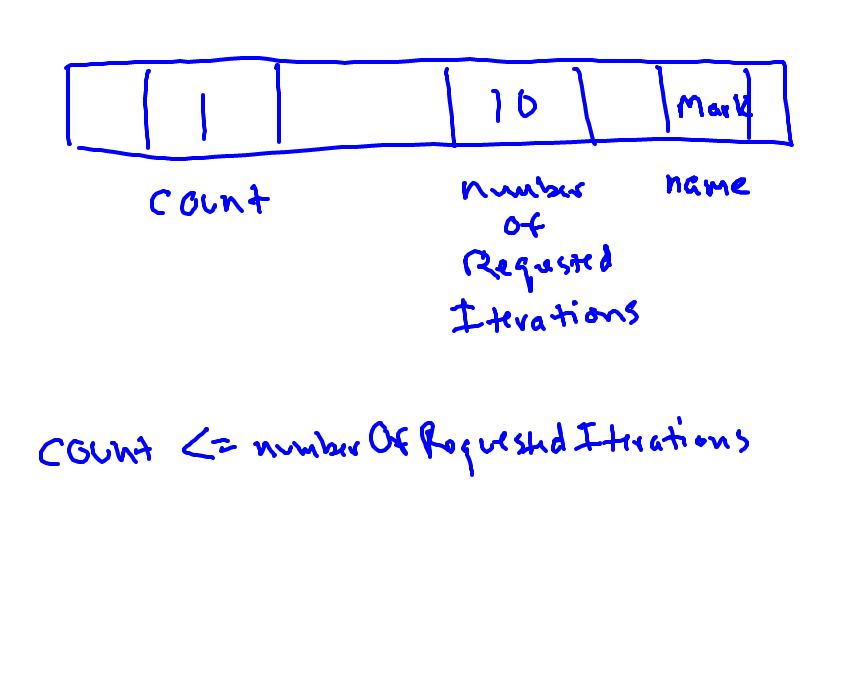 1 10 Mark
count number name
of
Requested
Iterations
count <= numberOfRequestedIterations